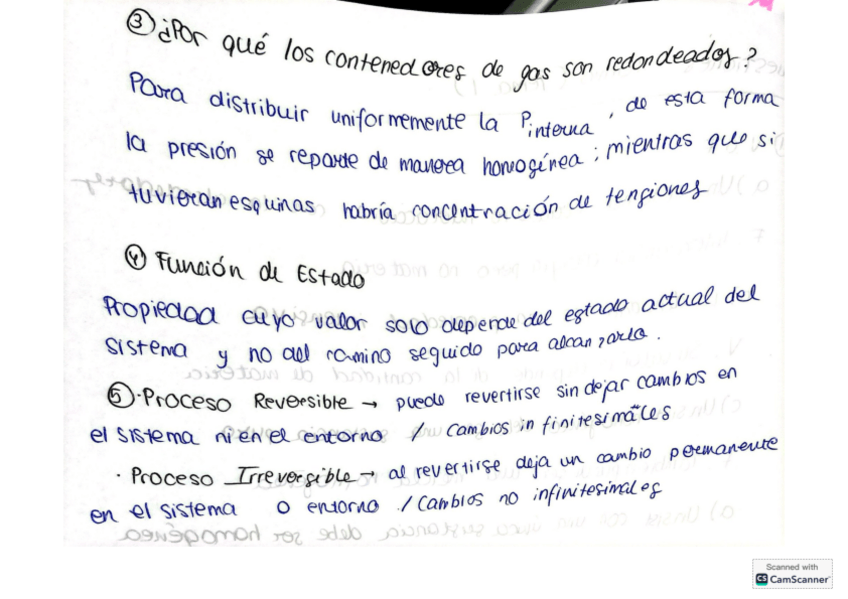 ③ ¿Por qué los contenedores de gas son redondeados?
Para distribuir uniformemente la Pinterna, de esta forma
la presión se reparte de manera homogénea; mientras que si
tuvieran esquinas habría concentración de tensiones
④ Función de Estado
Propiedad cuyo valor solo depende del estado actual del
sistema y no del camino seguido para alcanzarlo.
⑤ · Proceso Reversible → puede revertirse sin dejar cambios en
el sistema ni en el entorno / Cambios infinitesimales
· Proceso Irreversible → al revertirse deja un cambio permanente
en el sistema o entorno / Cambios no infinitesimales
Scanned with
CS CamScanner